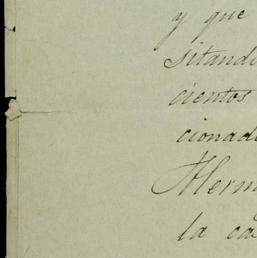 y que
sitando
cientos
cionad
Herm
la ca